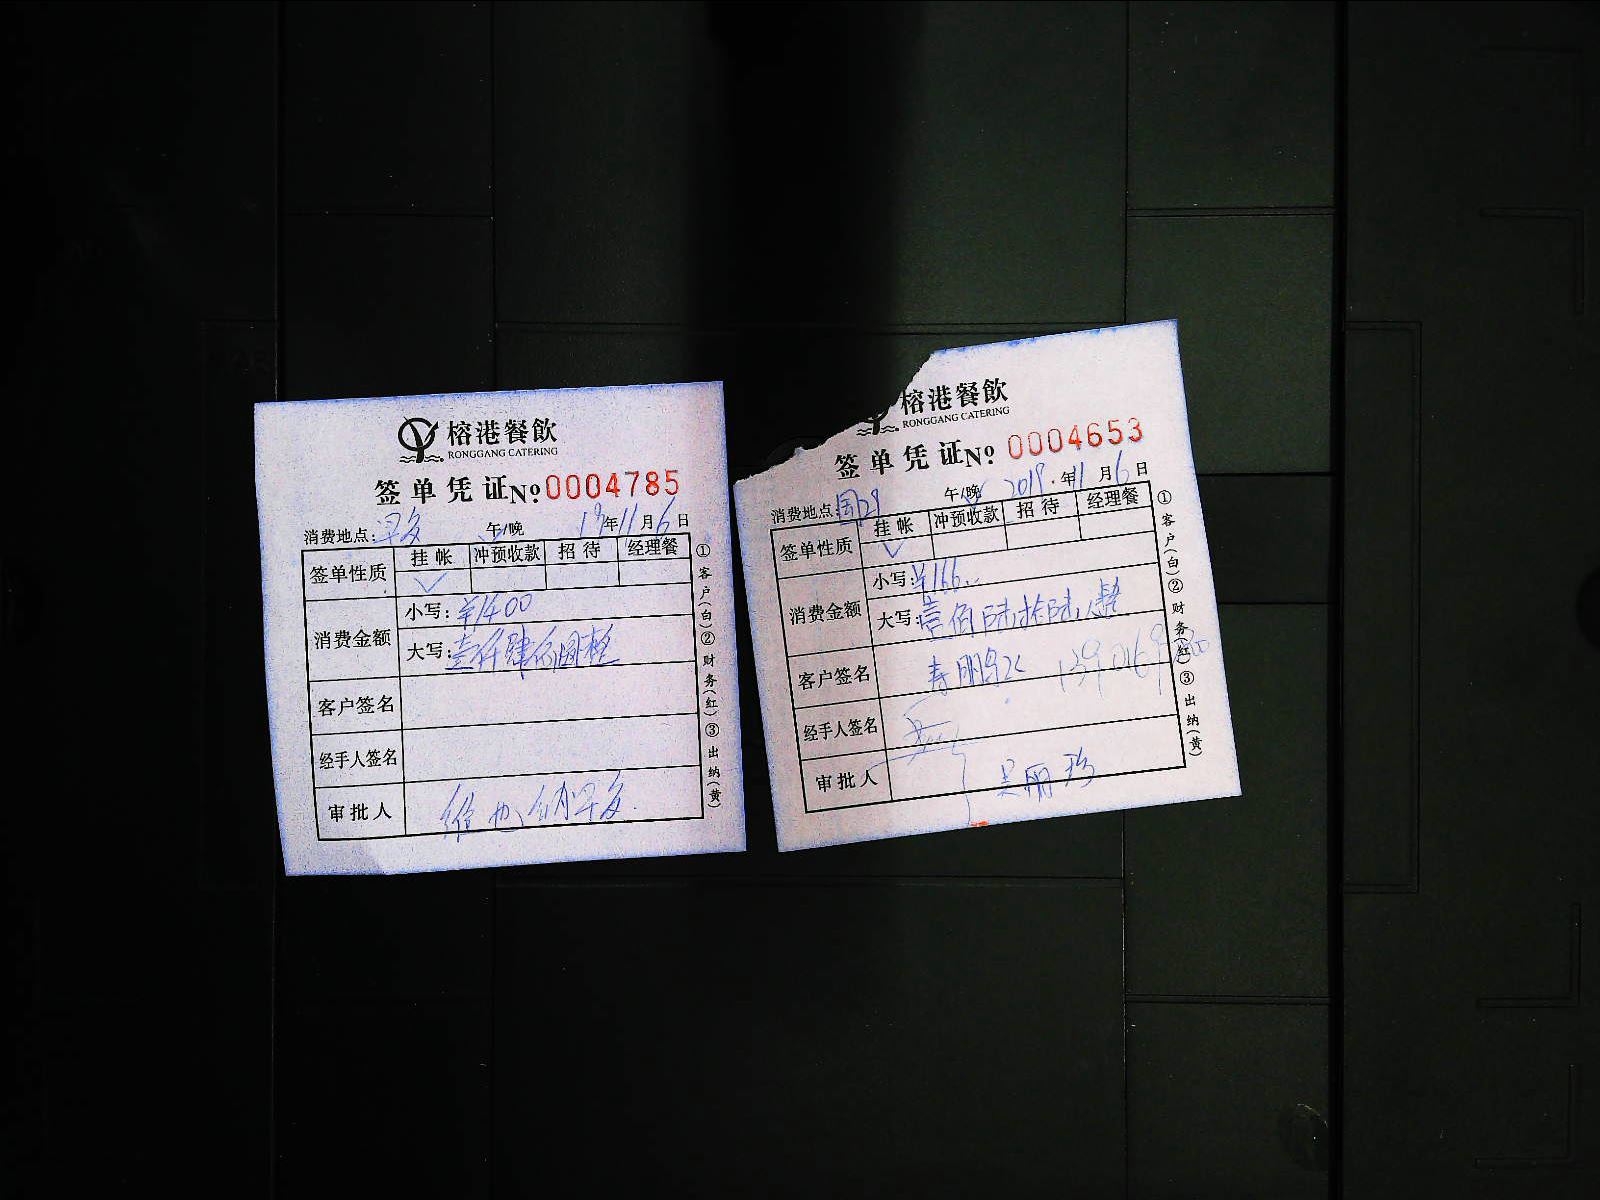 榕港餐飲
RONGGANG CATERING
签单凭证No 0004785
消费地点: 早多 午/晚 19年11月6日
签单性质 挂帐 冲预收款 招待 经理餐
✓
消费金额 小写: ¥1400
大写: 壹仟肆佰圆整
客户签名
经手人签名
审批人 维也纳早多
①客户(白)②财务(红)③出纳(黄)
榕港餐飲
RONGGANG CATERING
签单凭证No 0004653
消费地点: 午/晚 2019年11月6日
签单性质 挂帐 冲预收款 招待 经理餐
✓
消费金额 小写: ¥166
大写: 壹佰陆拾陆元整
客户签名
经手人签名
审批人 吴丽珍
①客户(白)②财务(红)③出纳(黄)